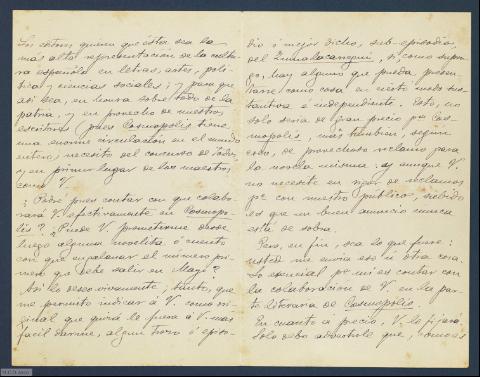 Los editores quieren que ésta sea la
más alta representación de la cultu-
ra española en letras, artes, polí-
tica y ciencias sociales; y para que
así sea, en honra sobre todo de la
patria, y en provecho de nuestros
escritores pues Cosmópolis tiene
una enorme circulación en el mundo
entero, necesito del concurso de todos,
y en primer lugar de los maestros,
como V.
¿Podré pues contar con que colabo-
rará V. efectivamente en Cosmópo-
lis? ¿Puede V. prometerme desde
luego alguna novelita ó cuento
con que engalanar el número pri-
mero que debe salir en Mayo?
Así lo deseo vivamente; tanto, que
me permito indicar á V. como ori-
ginal que quizá le fuera á V. más
fácil darme, algún trozo ó episo-
dio ó mejor dicho, sub-episodio,
del Zumalacárregui, si, como supon-
go, hay alguno que pueda presen-
tarse como cosa en cierto modo sus-
tantiva é independiente. Esto, no
solo sería de gran precio para Cos-
mópolis, más también, según
creo, de provechoso reclamo para
la novela misma. Y aunque V.
no necesite en rigor de reclamos
con nuestro público, sabido
es que un buen anuncio nunca
está de sobra.
Pero, en fin, sea lo que fuere:
usted me envía eso ú otra cosa.
Lo esencial por mí es contar con
la colaboración de V. en la par-
te literaria de Cosmópolis.
En cuanto á precio, V. lo fijará.
Solo debo advertirle que,